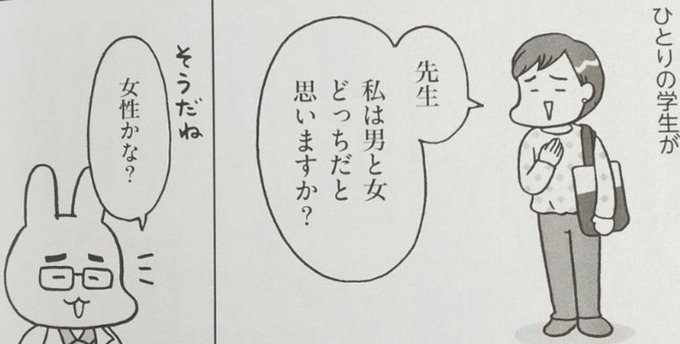 ひとりの学生が
先生
私は男と女
どっちだと
思いますか？
そうだね
女性かな？